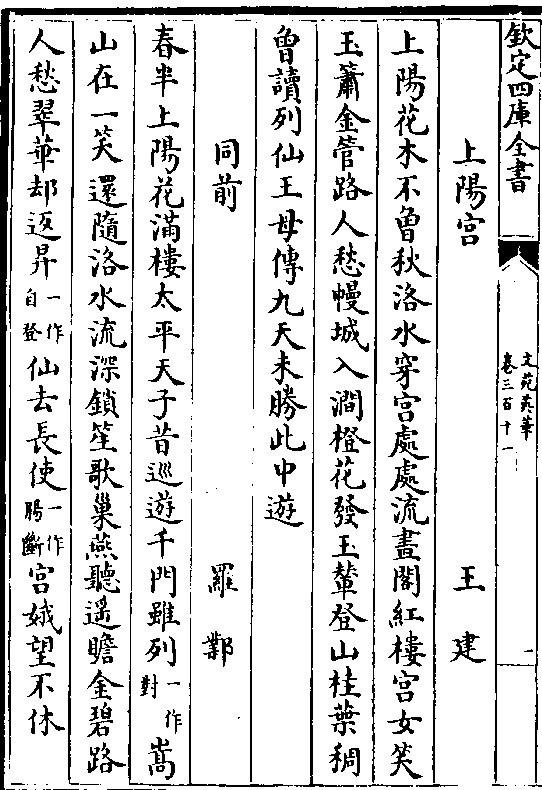 欽定四庫全書
文苑英華
卷三百十一
一
上陽宮　王建
上陽花木不曾秋洛水穿宮處處流畫閣紅樓宮女笑
玉簫金管路人愁幔城入澗橙花發玉輦登山桂葉稠
曾讀列仙王母傳九天未勝此中遊
同前　羅鄴
春半上陽花滿樓太平天子昔巡遊千門雖列一作對嵩
山在一笑還隨洛水流深鎖笙歌巢燕聽遥瞻金碧路
人愁翠華却返昇一作自登仙去長使一作腸斷宮娥望不休